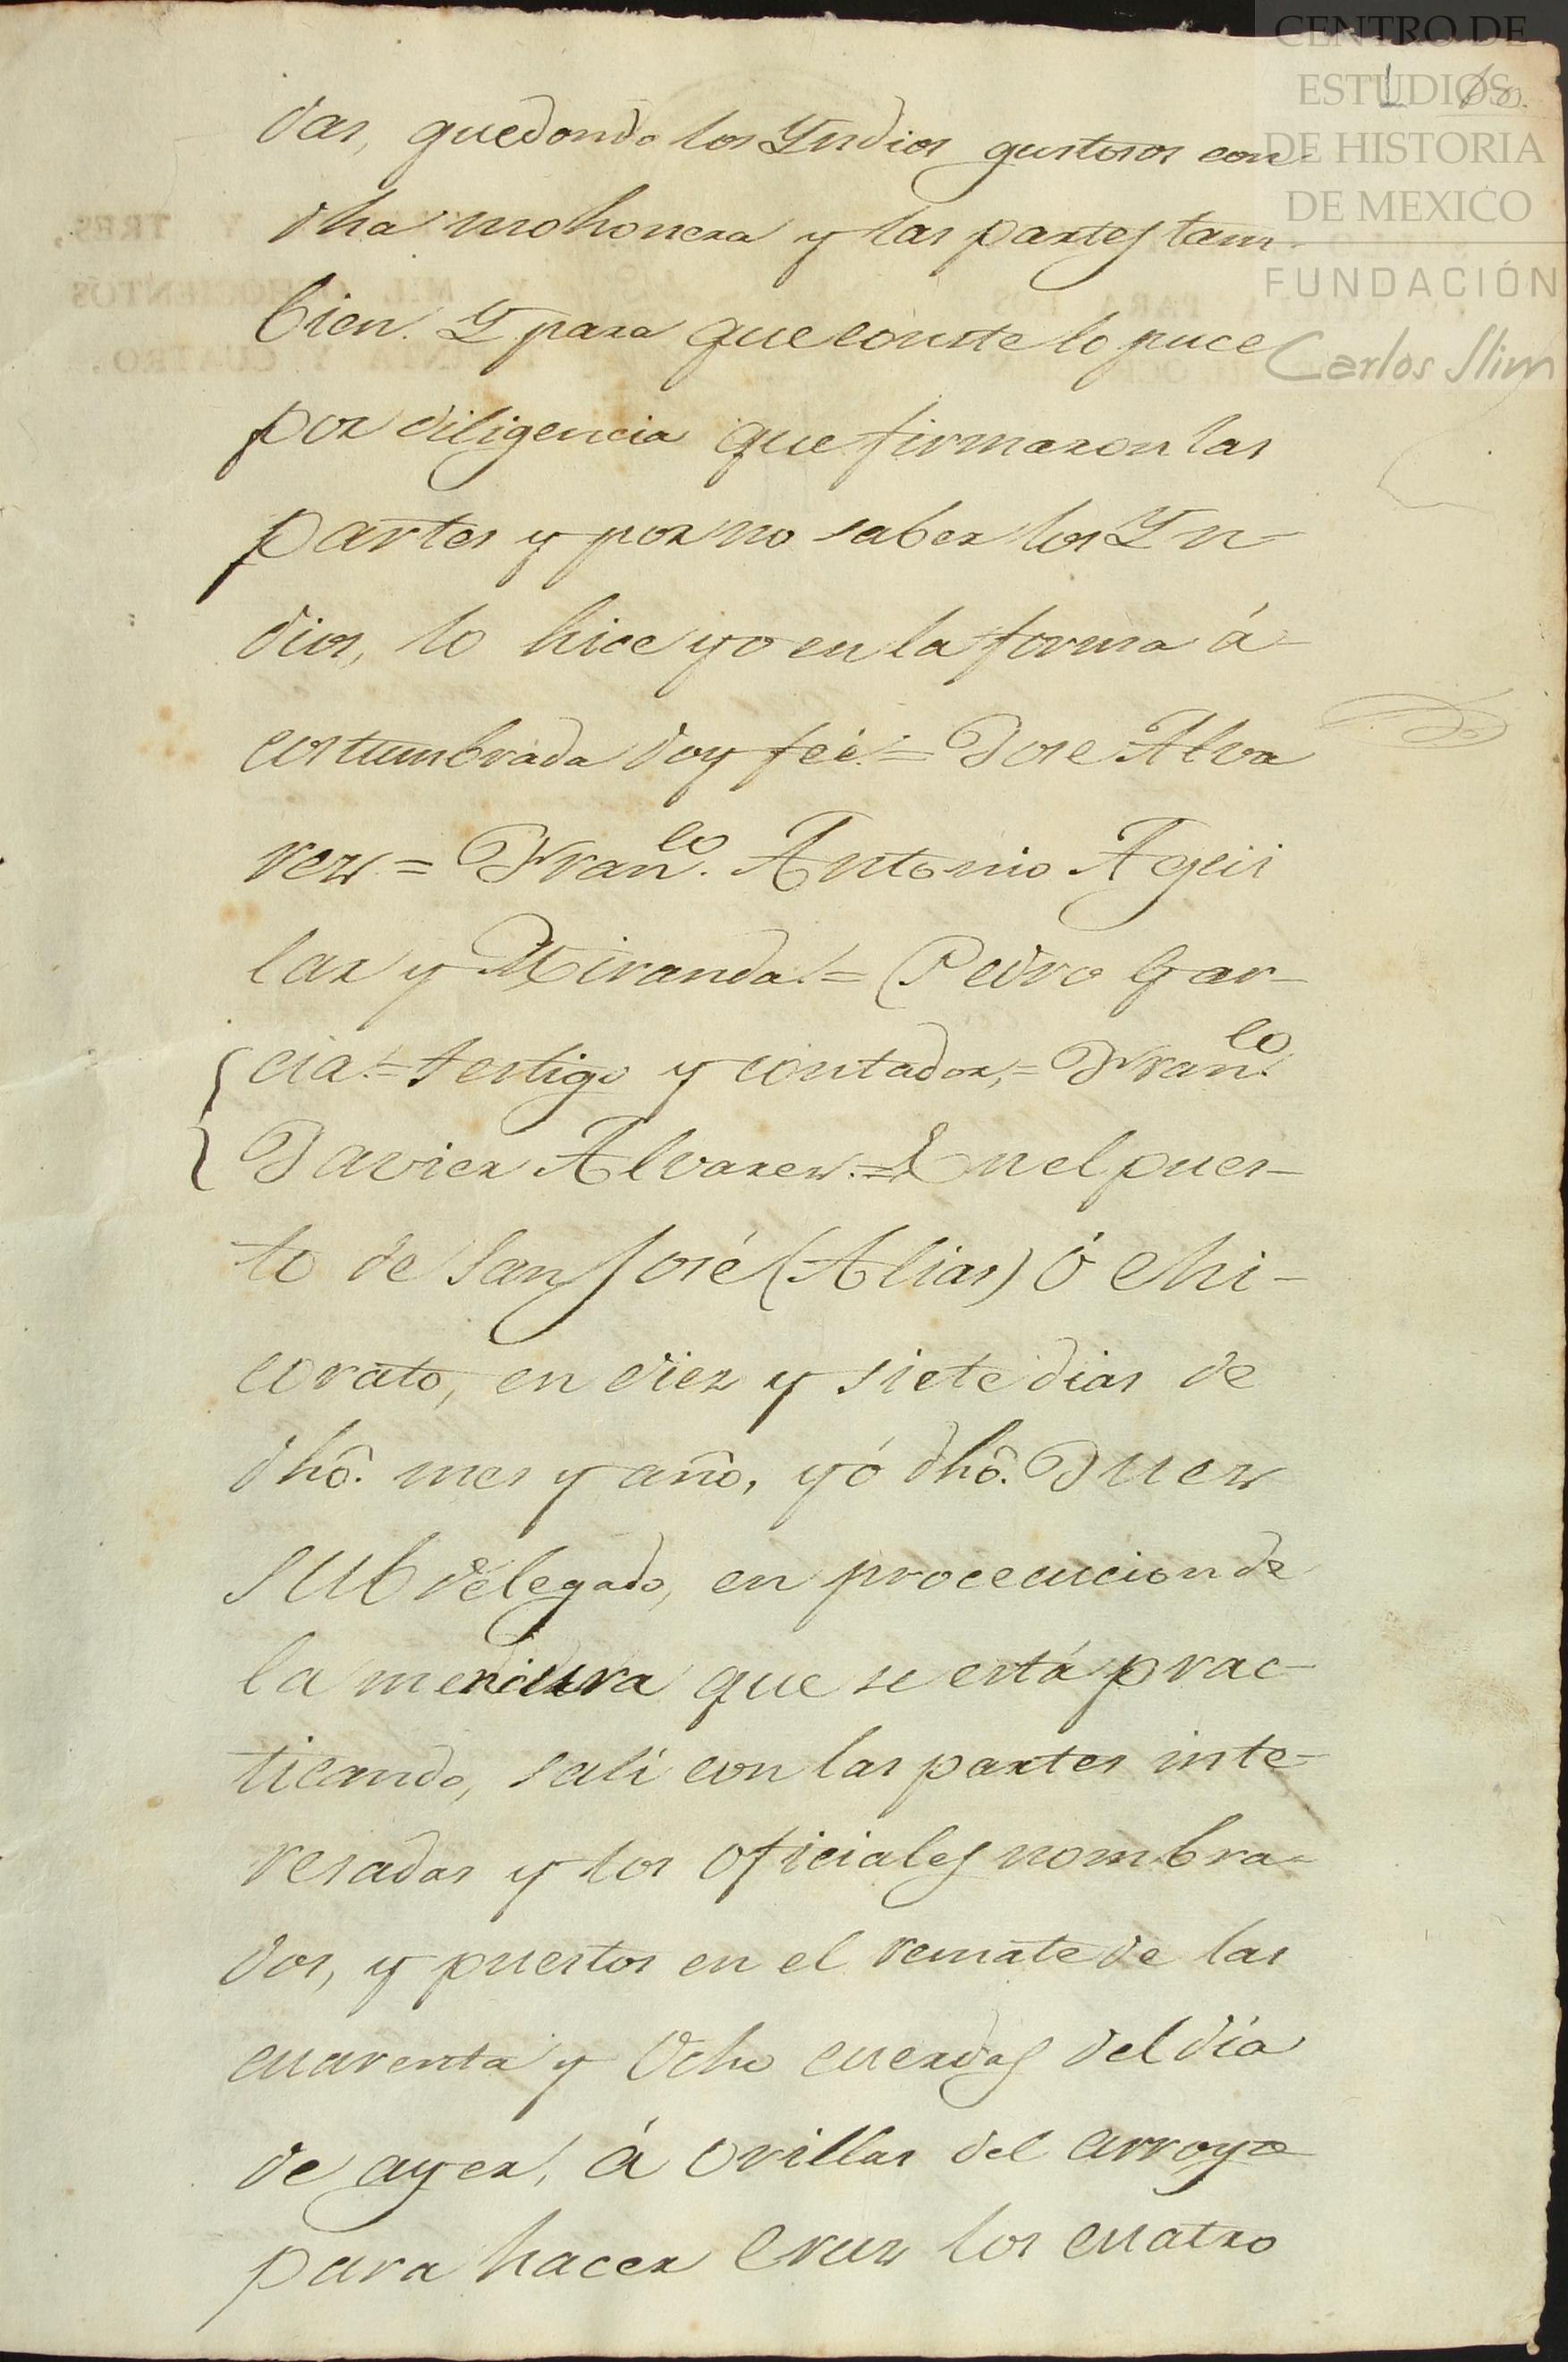 CENTRO DE
ESTUDIOS
DE HISTORIA
DE MEXICO
FUNDACIÓN
Carlos Slim
das, quedondo los Yndios gustosos con
dha mohonera y las partes tam-
bien. Y para que conste lo puce
por diligencia que firmaron las
partes y por no saber los Yn-
dios, lo hice yo en la forma á-
costumbrada doy feé.= Jose Alva
rez = Fran.co Antonio Agui
lar y Miranda.= Pedro Gar-
cia.= testigo y contador,= Fran.co
Javier Alvarez.= En el puer-
to de San José (Alias) ó Chi-
corato, en diez y siete dias de
dhô. mes y año, yó dhô. Juez
subdelegado, en procecucion de
la mencura que se está prac-
ticando, salí con las partes inte-
resadas y los oficiales nombra-
dos, y puestos en el remate de las
cuarenta y Ocho cuerdas del día
de ayer, á orillas del arroyo
para hacer cruz los cuatro